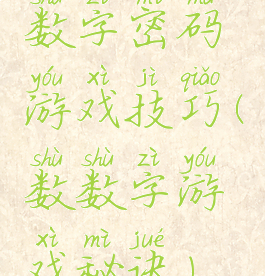 shù zì mì mǎ
数字密码
yóu xì jì qiǎo
游戏技巧(
shù shù zì yóu
数数字游
xì mì jué
戏秘诀)